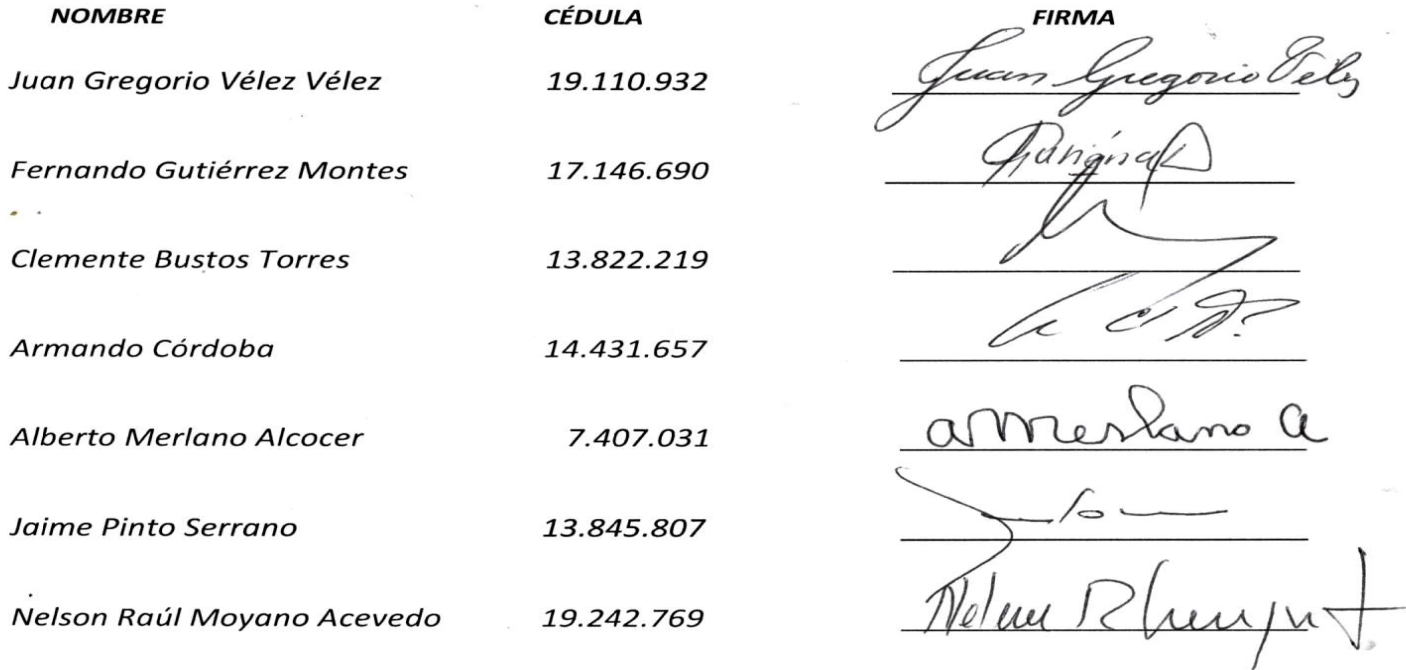 NOMBRE CÉDULA FIRMA
Juan Gregorio Vélez Vélez 19.110.932 Juan Gregorio Vélez
Fernando Gutiérrez Montes 17.146.690
Clemente Bustos Torres 13.822.219
Armando Córdoba 14.431.657
Alberto Merlano Alcocer 7.407.031 amerlano a
Jaime Pinto Serrano 13.845.807
Nelson Raúl Moyano Acevedo 19.242.769 Nelson R